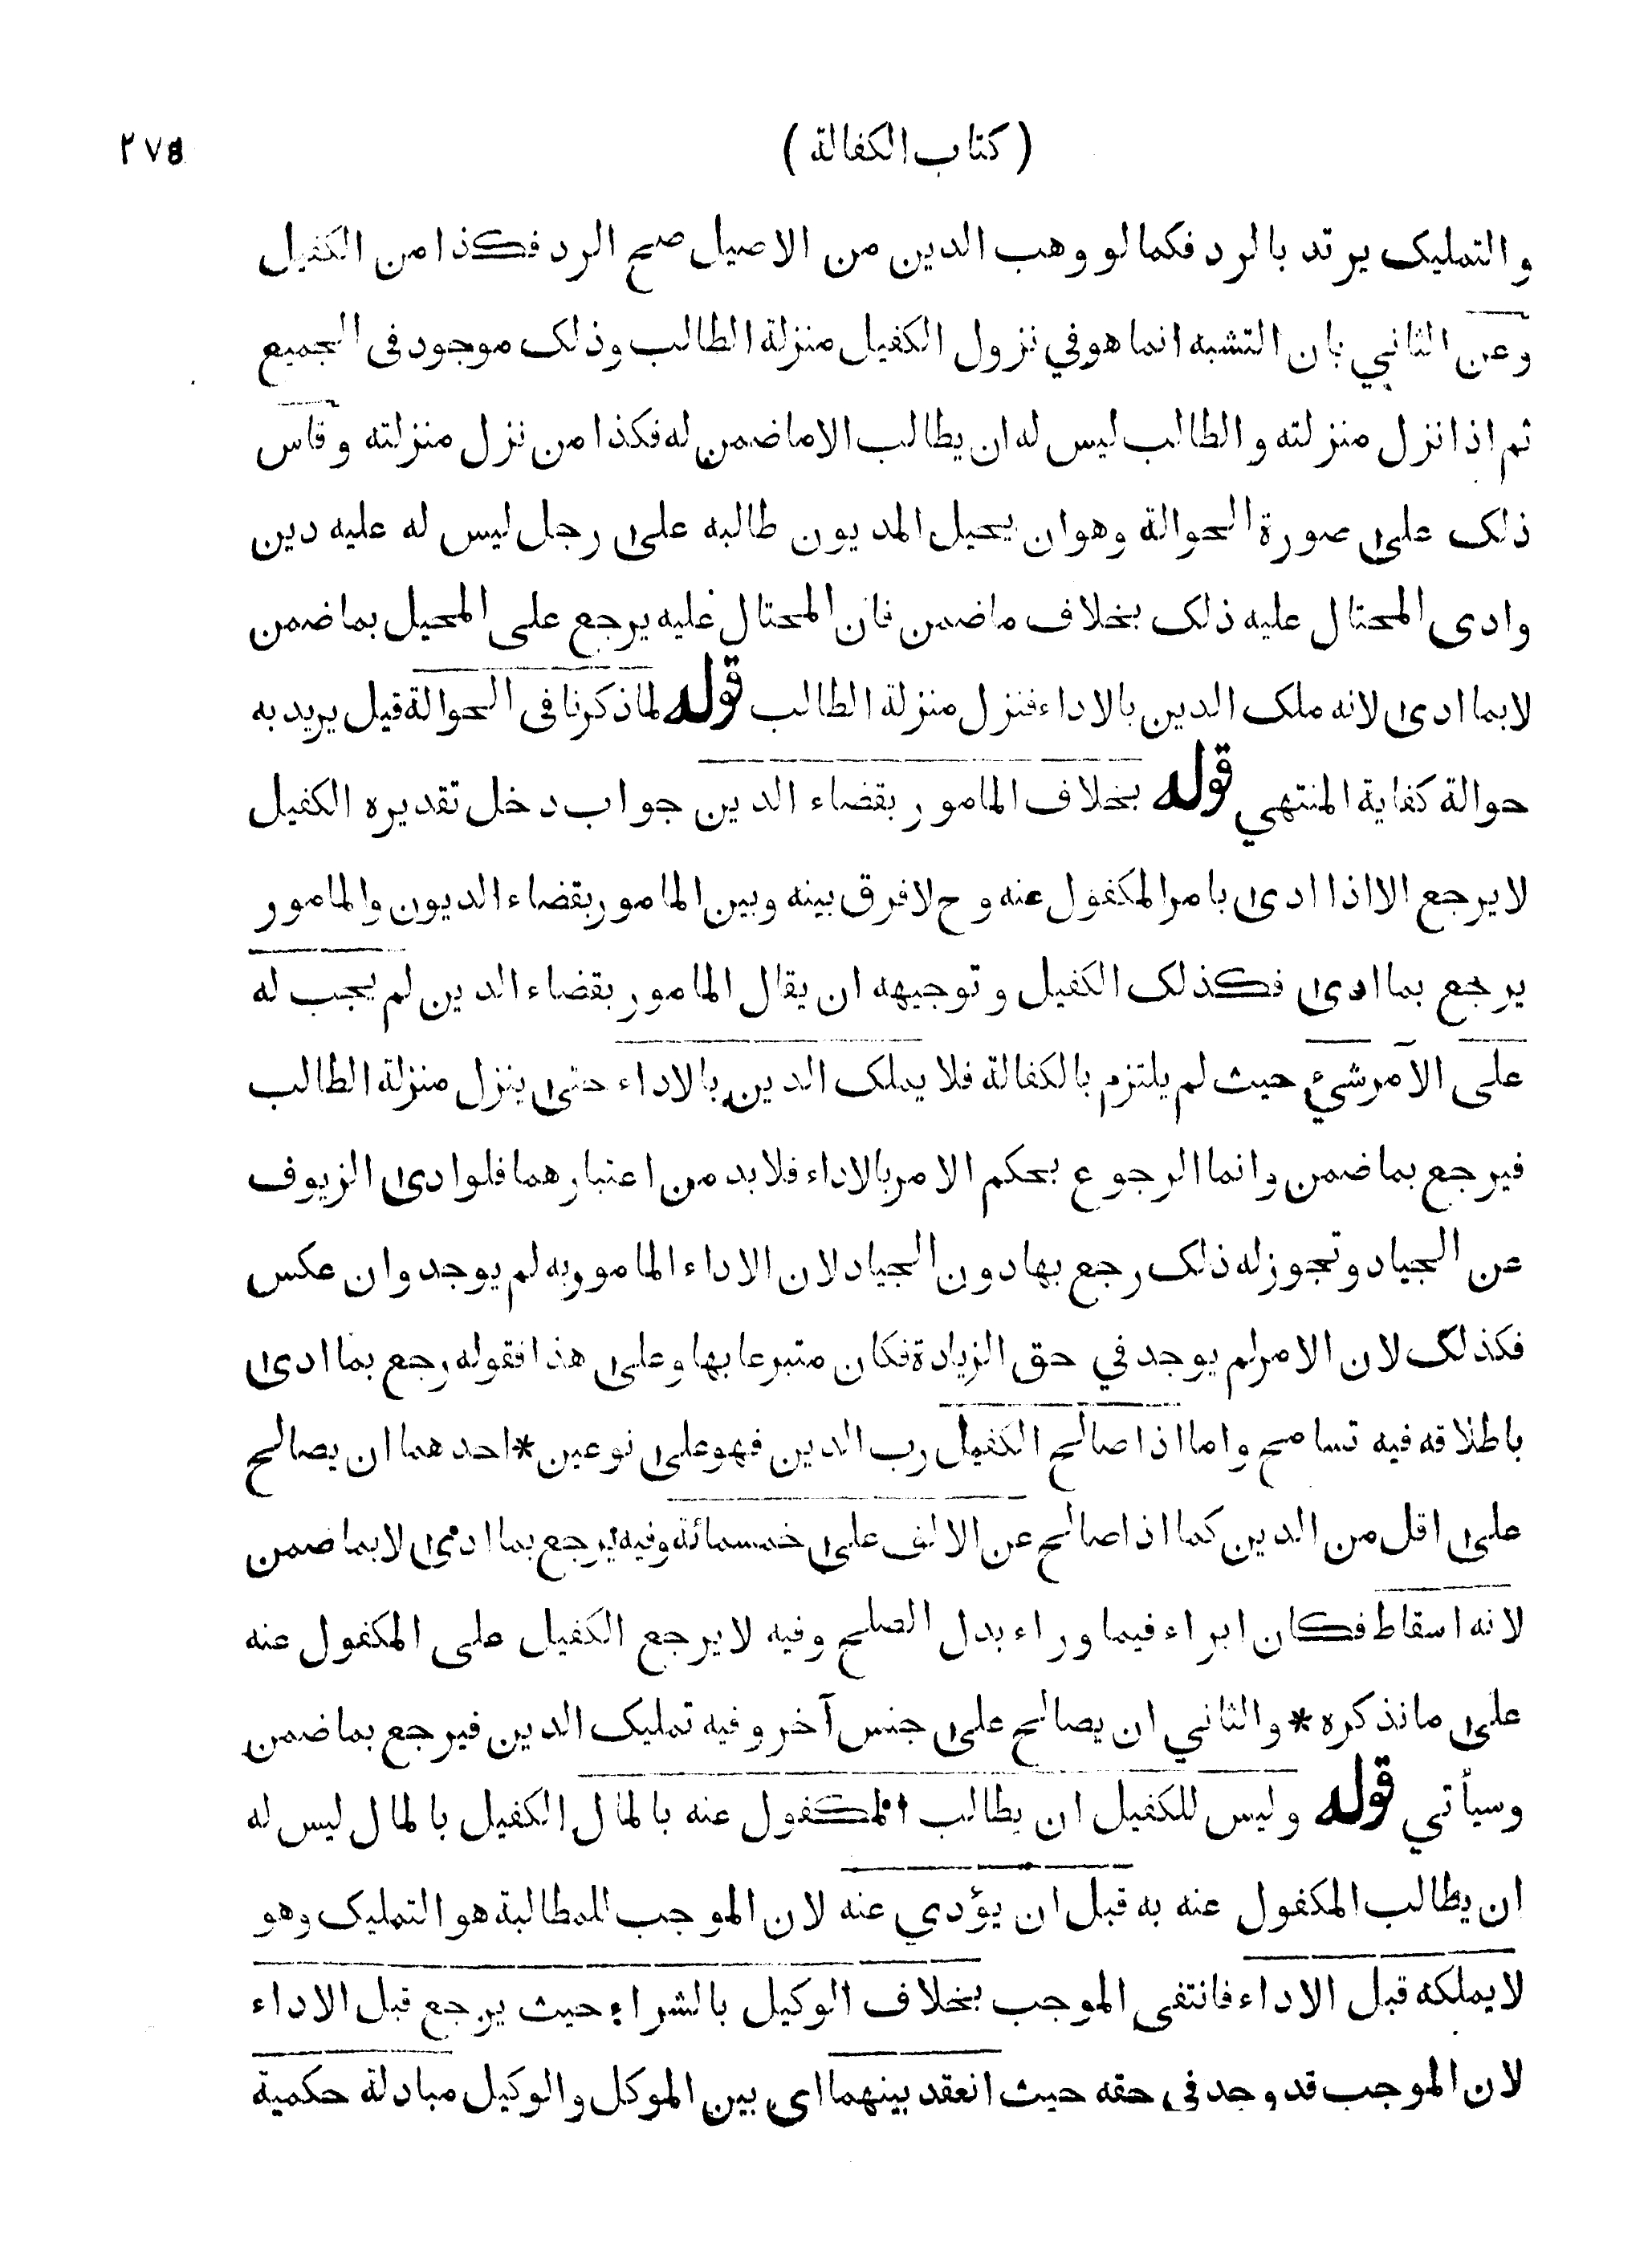 ( كتاب الكفالة )
والتمليك يرتد بالرد فكما لو وهب الدين من الاصيل صح الرد فكذا من الكفيل
وعن الثاني بان التشبه انما هو في نزول الكفيل منزلة الطالب وذلك موجود فى الجميع
ثم اذا نزل منزلته والطالب ليس له ان يطالب الا ما ضمن له فكذا من نزل منزلته وقاس
ذلك على صورة الحوالة وهو ان يحيل المديون طالبه على رجل ليس له عليه دين
وادى المحتال عليه ذلك بخلاف ما ضمن فان المحتال عليه يرجع على المحيل بما ضمن
لا بما ادى لانه ملك الدين بالاداء فنزل منزلة الطالب قوله لما ذكرنا فى الحوالة قيل يريد به
حوالة كفاية المنتهي قوله بخلاف المامور بقضاء الدين جواب دخل تقديره الكفيل
لا يرجع الا اذا ادى بامر المكفول عنه و ح لا فرق بينه وبين المامور بقضاء الديون والمامور
يرجع بما ادى فكذلك الكفيل وتوجيهه ان يقال المامور بقضاء الدين لم يجب له
على الآمر شيء حيث لم يلتزم بالكفالة فلا يملك الدين بالاداء حتى ينزل منزلة الطالب
فيرجع بما ضمن وانما الرجوع بحكم الامر بالاداء فلا بد من اعتبارهما فلو ادى الزيوف
عن الجياد وتجوز له ذلك رجع بها دون الجياد لان الاداء المامور به لم يوجد وان عكس
فكذلك لان الامر لم يوجد في حق الزيادة فكان متبرعا بها وعلى هذا فقوله رجع بما ادى
باطلاقه فيه تسامح واما اذا صالح الكفيل رب الدين فهو على نوعين * احدهما ان يصالح
على اقل من الدين كما اذا صالح عن الالف على خمسمائة وفيه يرجع بما ادى لا بما ضمن
لانه اسقاط فكان ابراء فيما وراء بدل الصلح وفيه لا يرجع الكفيل على المكفول عنه
على ما نذكره * والثاني ان يصالح على جنس آخر وفيه تمليك الدين فيرجع بما ضمن
وسيأتي قوله وليس للكفيل ان يطالب المكفول عنه بالمال الكفيل بالمال ليس له
ان يطالب المكفول عنه به قبل ان يؤدي عنه لان الموجب للمطالبة هو التمليك وهو
لا يملكه قبل الاداء فانتفى الموجب بخلاف الوكيل بالشراء حيث يرجع قبل الاداء
لان الموجب قد وجد فى حقه حيث انعقد بينهما اى بين الموكل والوكيل مبادلة حكمية